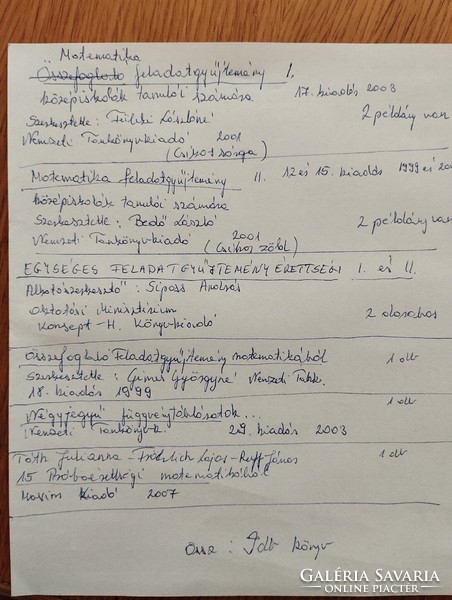 Matematika
Összefoglaló feladatgyűjtemény I.
középiskolák tanulói számára 17. kiadás 2003
Szerkesztette: Füleki Lászlóné 2 példány van
Nemzeti Tankönyvkiadó 2001
(Csíkos sárga)
Matematika feladatgyűjtemény II. 12 és 15. kiadás 1999 és 200
középiskolák tanulói számára
Szerkesztette: Bedő László 2 példány van
Nemzeti Tankönyvkiadó 2001
(Csíkos zöld)
EGYSÉGES FELADATGYŰJTEMÉNY ÉRETTSÉGI I. és II.
Alkotószerkesztő: Siposs András
Oktatási Minisztérium
Konsept-H. Könyvkiadó 2 darabos
Összefoglaló Feladatgyűjtemény matematikából 1 db
Szerkesztette: Gimes Györgyné Nemzeti Tank.
18. kiadás 1999
Négyjegyű függvénytáblázatok... 1 db
Nemzeti Tankönyvk. 2003
Tóth Julianna - Fröhlich Lajos - Ruff János 1 db
15 Próbaérettségi matematikából
Maxim Kiadó 2007
Össz: 9db könyv
GALÉRIA SAVARIA
ONLINE PIACTÉR